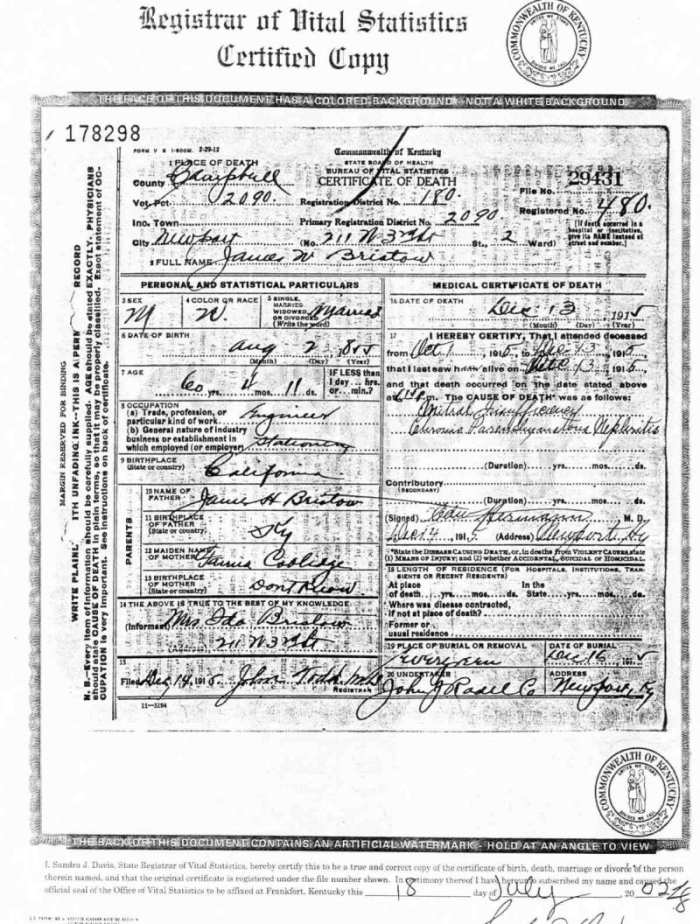 Registrar of Vital Statistics
Certified Copy
COMMONWEALTH OF KENTUCKY
THE FACE OF THIS DOCUMENT HAS A COLORED BACKGROUND - NOT A WHITE BACKGROUND
178298
FORM V S 1-500M. 2-29-12
Commonwealth of Kentucky
STATE BOARD OF HEALTH
BUREAU OF VITAL STATISTICS
CERTIFICATE OF DEATH
1 PLACE OF DEATH
County Campbell
File No. 29431
Vot. Pct. 2090. Registration District No. 180. Registered No. 480.
Inc. Town Primary Registration District No. 2090.
[If death occurred in a hospital or institution, give its NAME instead of street and number.]
City Newport (No. 211 W 3rd St St., 2 Ward)
2 FULL NAME James W Bristow
MARGIN RESERVED FOR BINDING
WRITE PLAINL ITH UNFADING INK--THIS IS A PERM RECORD
N. B.--Every item of information should be carefully supplied. AGE should be stated EXACTLY. PHYSICIANS
should state CAUSE OF DEATH in plain terms, so that it may be properly classified. Exact statement of OC-
CUPATION is very important. See instructions on back of certificate.
PERSONAL AND STATISTICAL PARTICULARS
3 SEX M
4 COLOR OR RACE W.
5 SINGLE, MARRIED, WIDOWED, OR DIVORCED (Write the word) Married
6 DATE OF BIRTH
Aug 2 1855
(Month) (Day) (Year)
7 AGE
60 yrs. 4 mos. 11 ds.
IF LESS than 1 day... hrs. or... min.?
8 OCCUPATION
(a) Trade, profession, or particular kind of work Engineer
(b) General nature of industry business or establishment in which employed (or employer) Stationery
9 BIRTHPLACE
(State or country) California
PARENTS
10 NAME OF FATHER James H Bristow
11 BIRTHPLACE OF FATHER (State or country) Ky
12 MAIDEN NAME OF MOTHER Coolidge
13 BIRTHPLACE OF MOTHER (State or country) Dont Know
14 THE ABOVE IS TRUE TO THE BEST OF MY KNOWLEDGE
(Informant) Mrs Ida Bristow
(Address) 211 W 3rd St
15
Filed Dec 14, 1915 John Todd M.D.
REGISTRAR
11-3184
MEDICAL CERTIFICATE OF DEATH
16 DATE OF DEATH
Dec 13 1915
(Month) (Day) (Year)
17 I HEREBY CERTIFY, That I attended deceased
from Oct 1, 1915, to Dec 13, 1915,
that I last saw him alive on Dec 13, 1915,
and that death occurred on the date stated above
at m. The CAUSE OF DEATH* was as follows:
Mitral Insufficiency
Chronic Parenchymatous Nephritis
(Duration) yrs. mos. ds.
Contributory
(SECONDARY)
(Duration) yrs. mos. ds.
(Signed) Herrmann M. D.
Dec 14, 1915. (Address) Newport, Ky
*State the DISEASE CAUSING DEATH, or, in deaths from VIOLENT CAUSES, state
(1) MEANS OF INJURY; and (2) whether ACCIDENTAL, SUICIDAL or HOMICIDAL.
18 LENGTH OF RESIDENCE (FOR HOSPITALS, INSTITUTIONS, TRAN-
SIENTS OR RECENT RESIDENTS)
At place In the
of death yrs. mos. ds. State yrs. mos. ds.
Where was disease contracted,
if not at place of death?
Former or
usual residence
19 PLACE OF BURIAL OR REMOVAL
Evergreen
DATE OF BURIAL
Dec 16 1915
20 UNDERTAKER
John J Radel Co
ADDRESS
Newport, Ky
COMMONWEALTH OF KENTUCKY
THE BACK OF THIS DOCUMENT CONTAINS AN ARTIFICIAL WATERMARK - HOLD AT AN ANGLE TO VIEW
I, Sandra J. Davis, State Registrar of Vital Statistics, hereby certify this to be a true and correct copy of the certificate of birth, death, marriage or divorce of the person
therein named, and that the original certificate is registered under the file number shown. In testimony thereof I have hereunto subscribed my name and caused the
official seal of the Office of Vital Statistics to be affixed at Frankfort, Kentucky this 18 day of July, 20